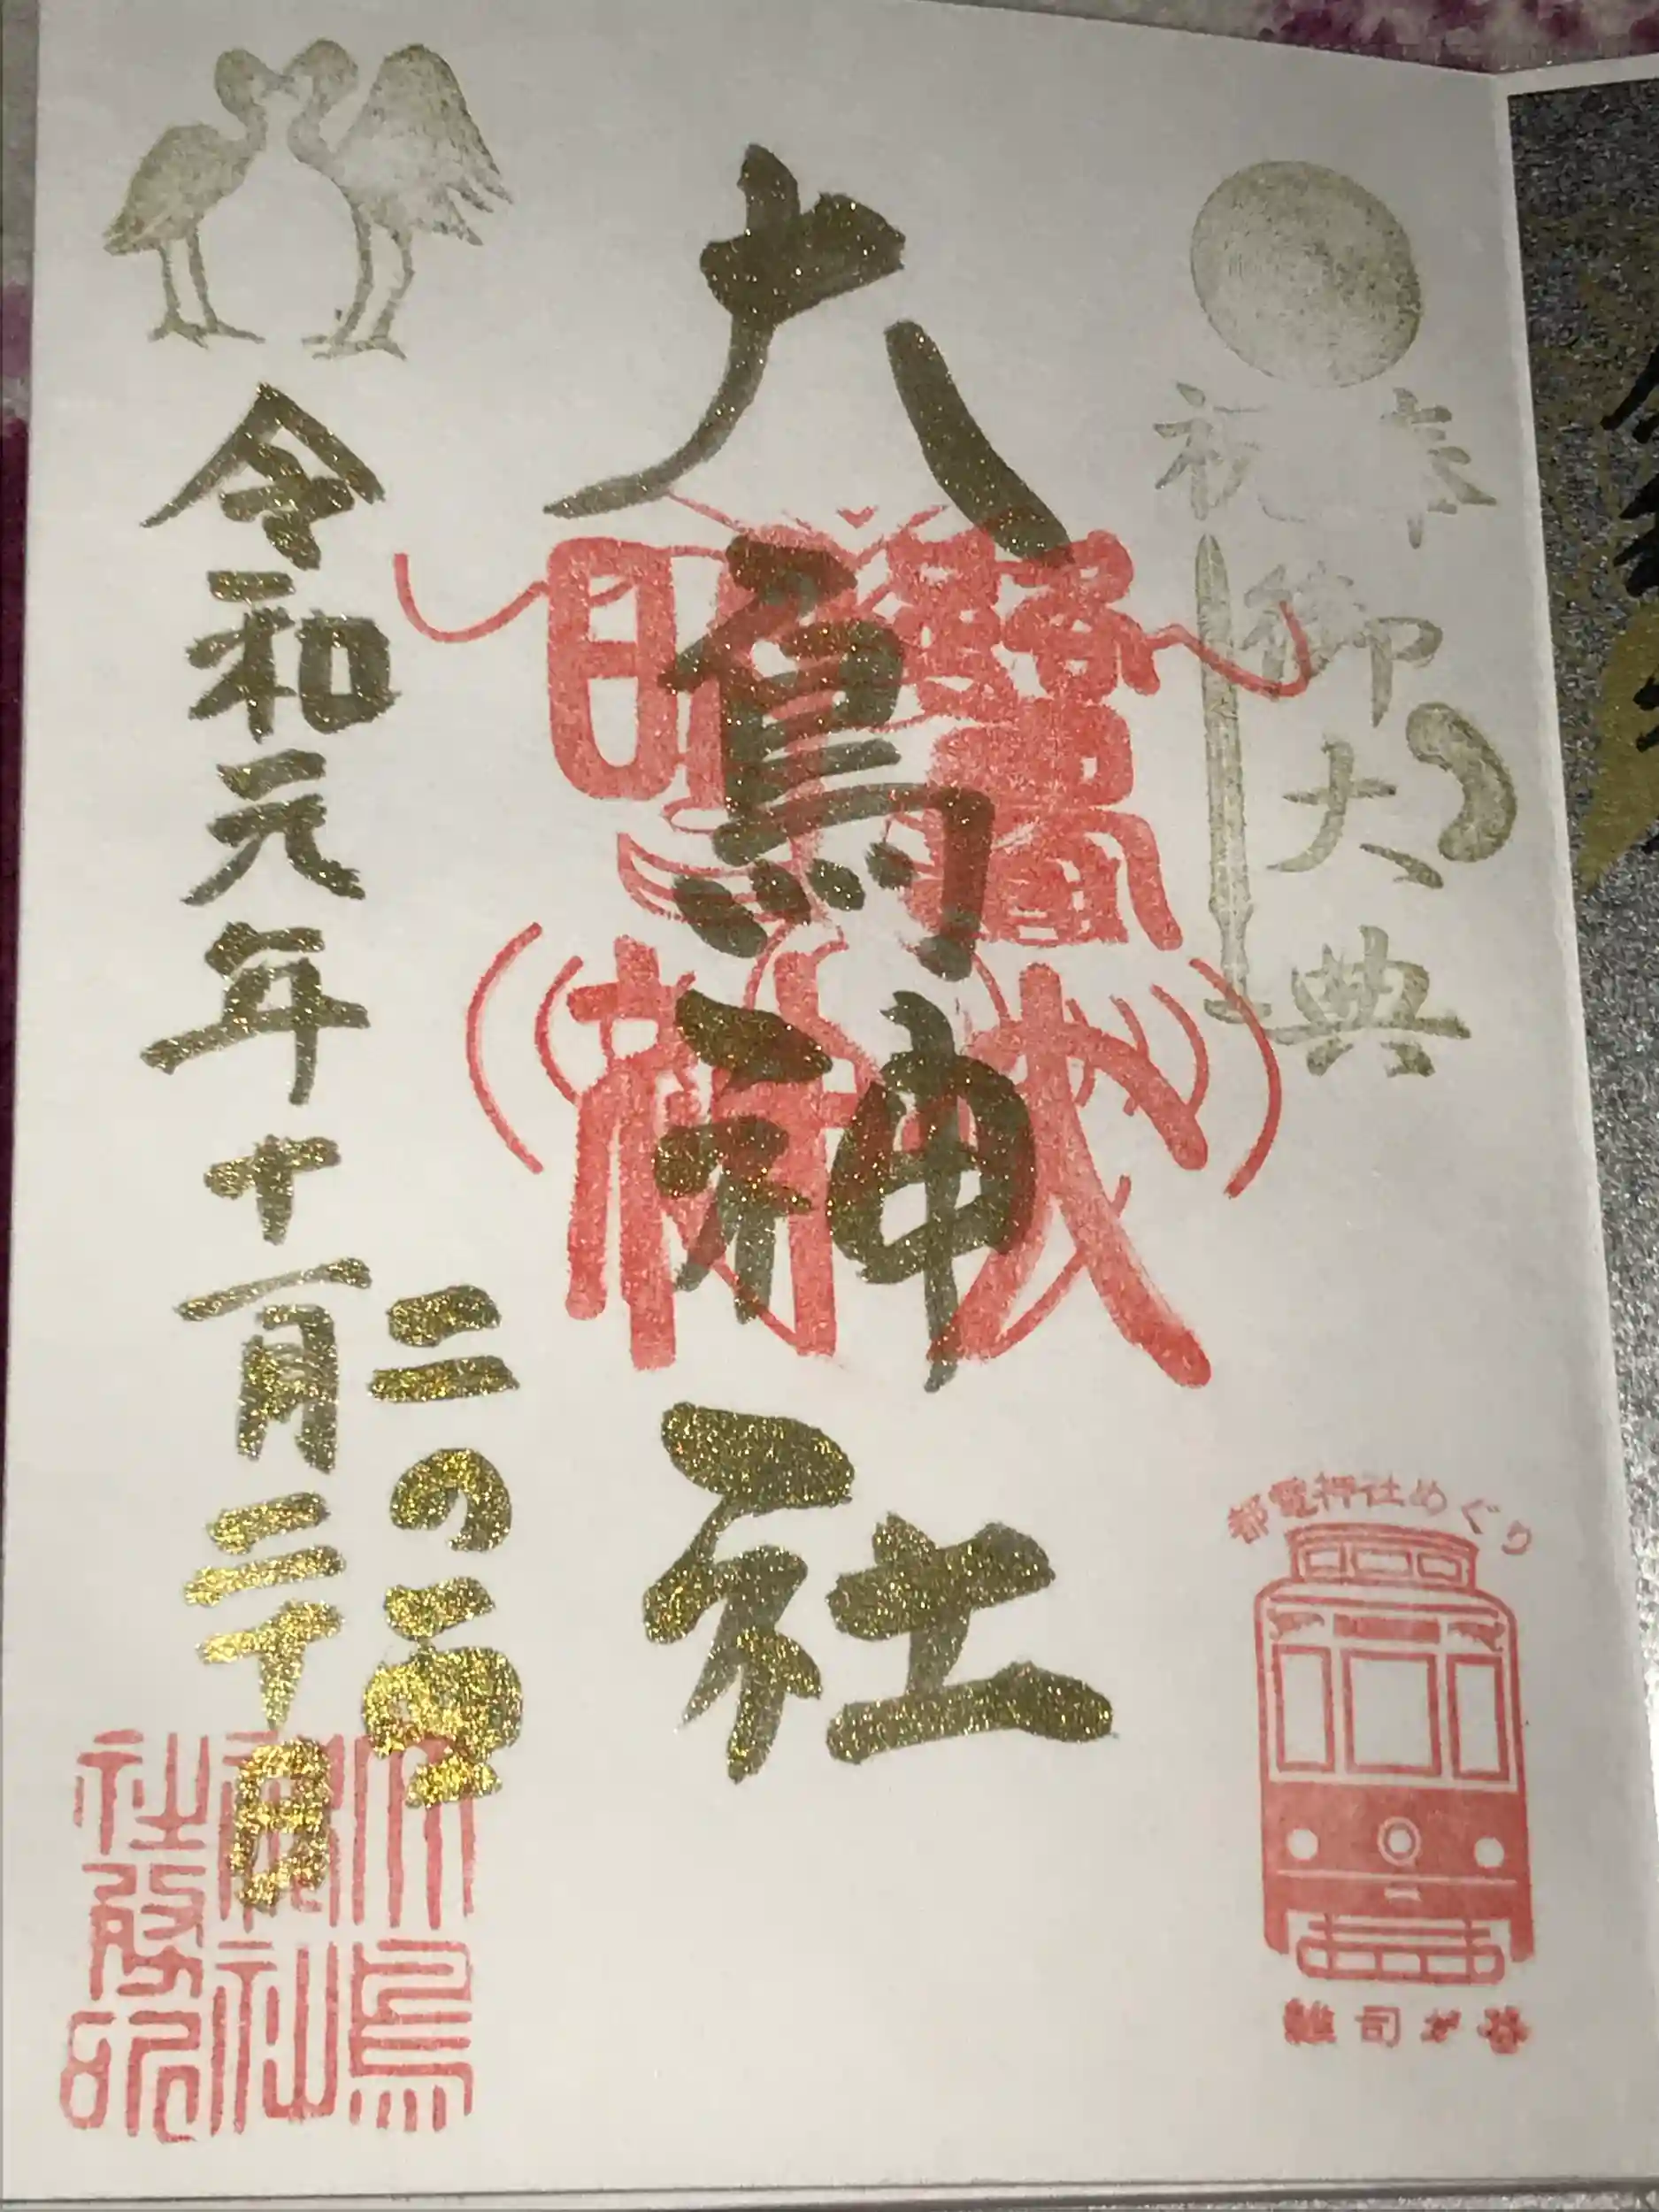 奉祝
御大典
大鳥神社
二の酉
令和元年十一月二十日
都電神社めぐり
雑司が谷
大鳥
神社
社務所